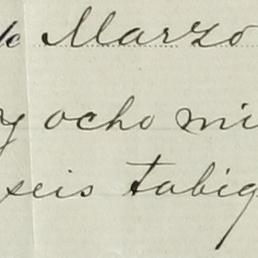 de Marzo
y ocho mi
seis tabiq